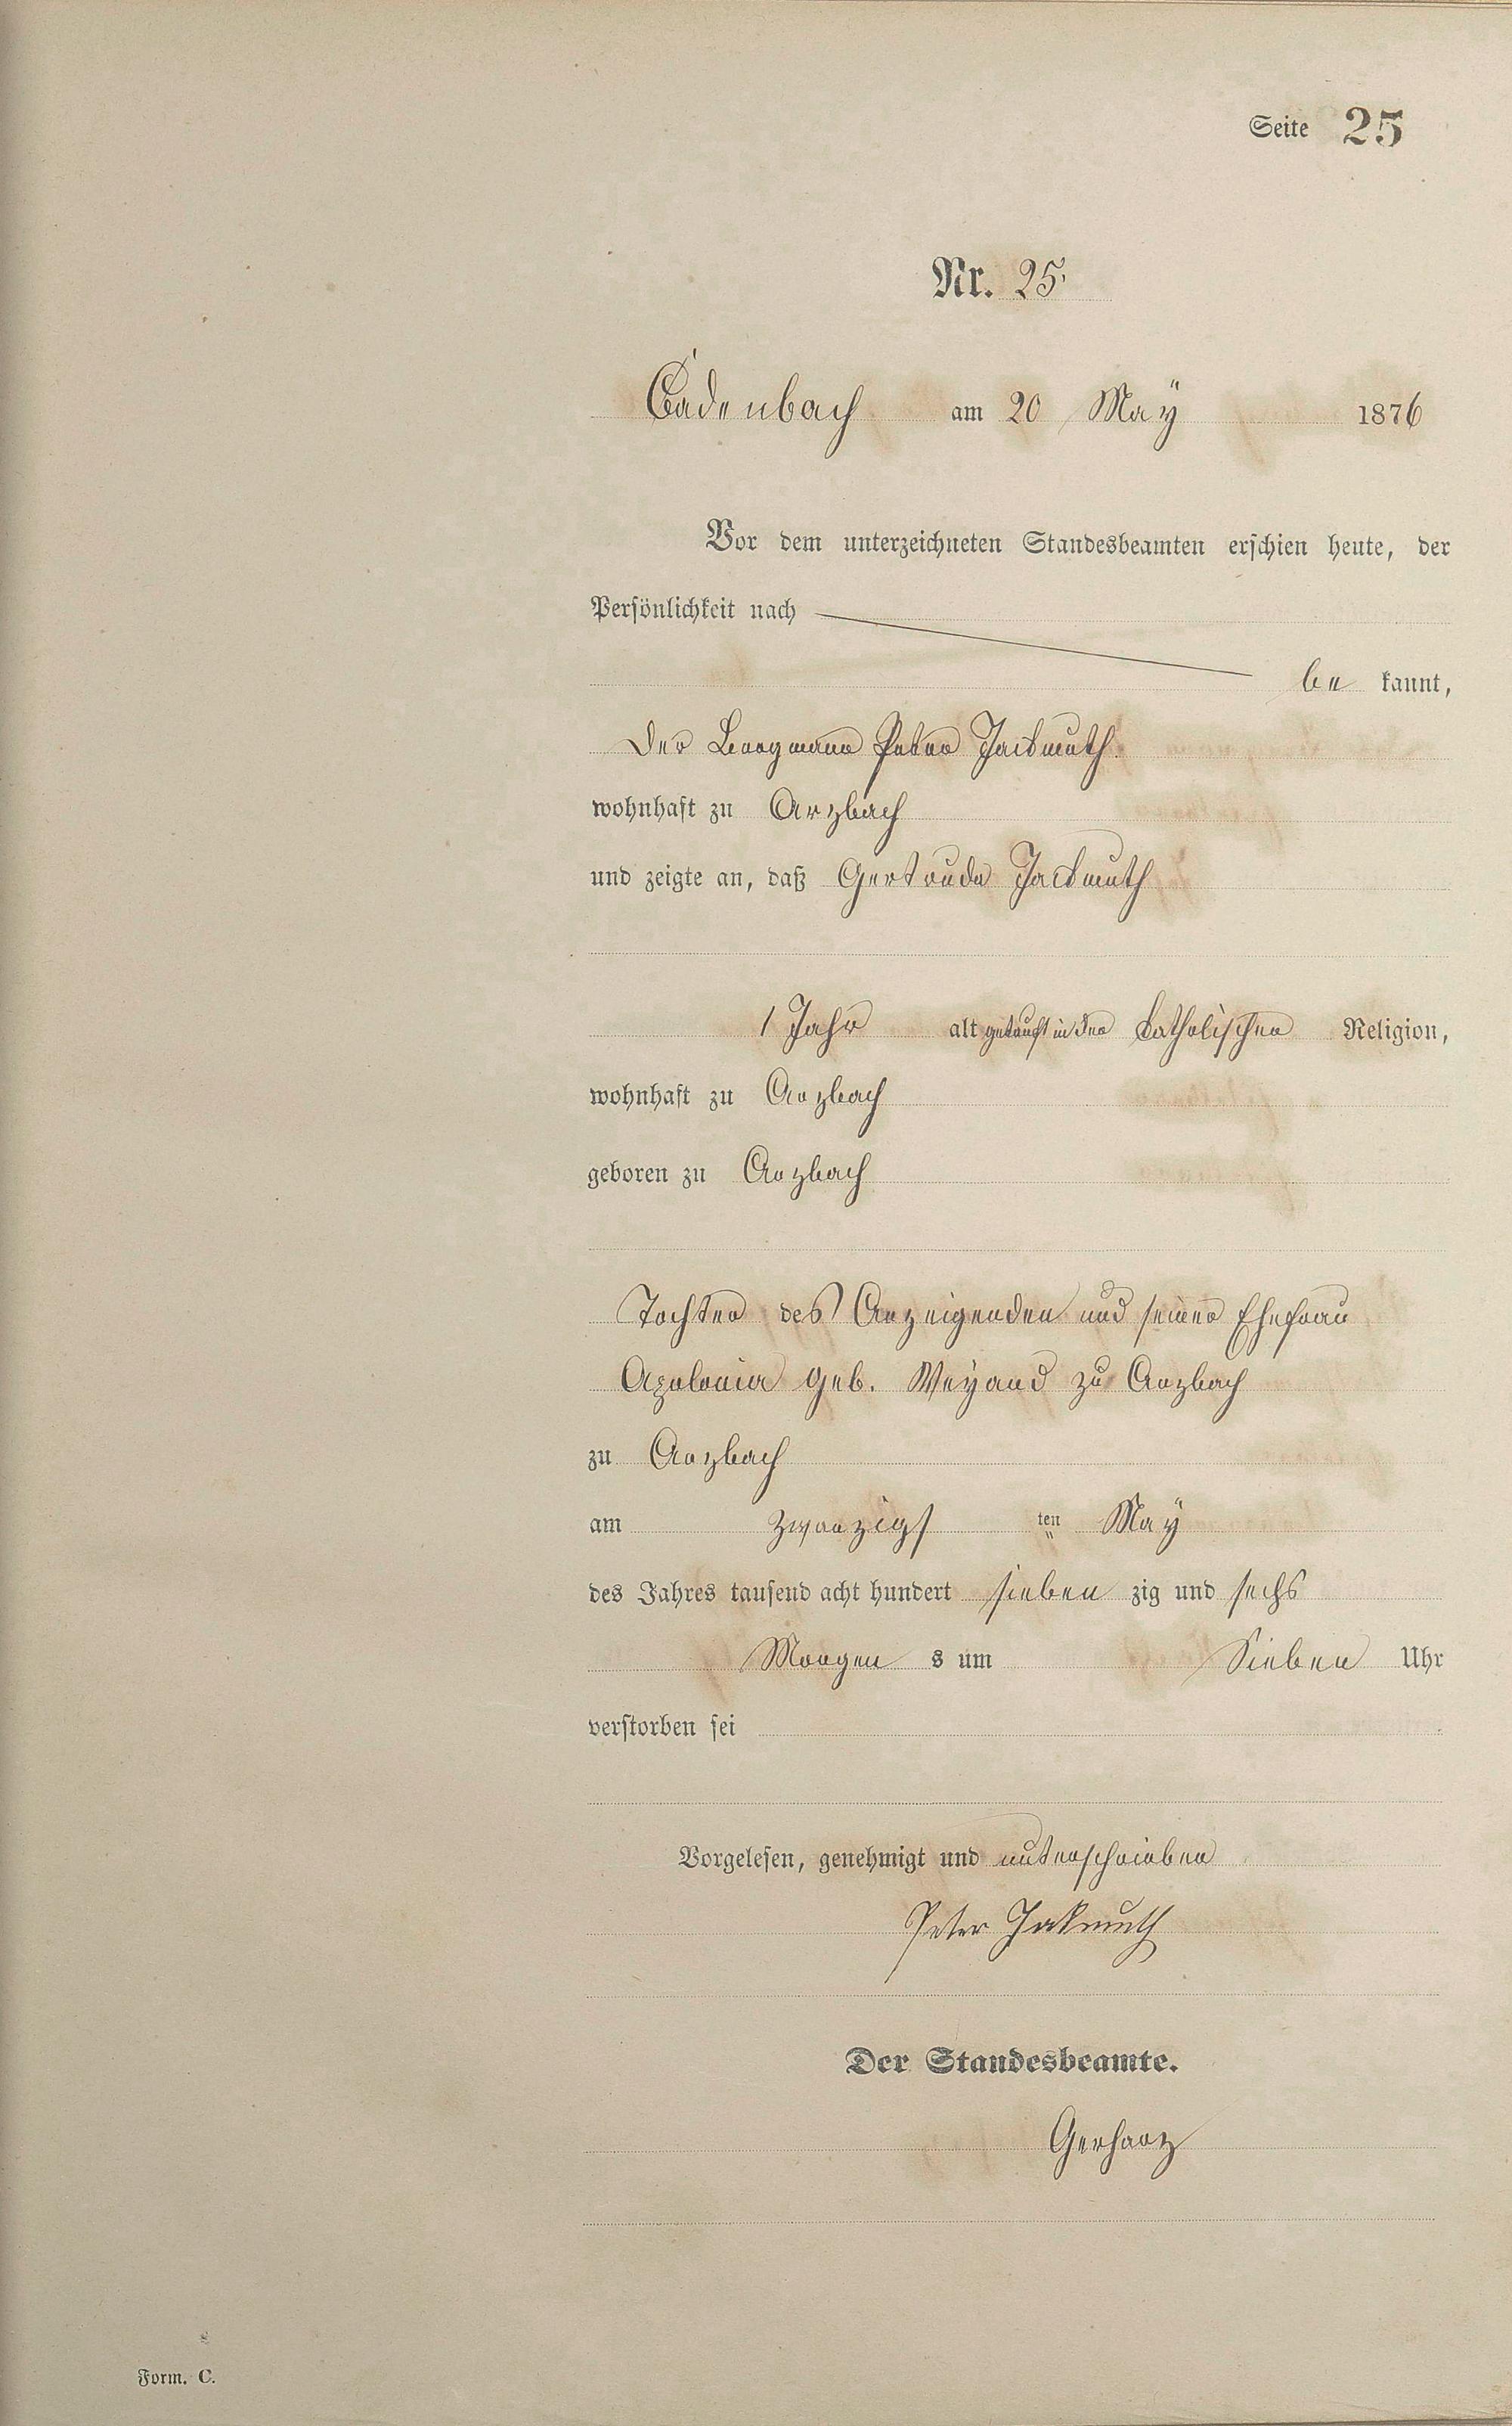 Seite 25
Nr. 25.
Cadenbach am 20 Maÿ 1876
Vor dem unterzeichneten Standesbeamten erschien heute, der
Persönlichkeit nach
be kannt,
Der Bergmann Peter Jackmuth
wohnhaft zu Arzbach
und zeigte an, daß Gertrude Jackmuth
1 Jahr alt getauft in der katholischen Religion,
wohnhaft zu Arzbach
geboren zu Arzbach
Tochter des Anzeigenden und seiner Ehefrau
Apolonia geb. Weyand zu Arzbach
zu Arzbach
am zwanzigs ten Maÿ
des Jahres tausend acht hundert sieben zig und sechs
Morgen s um Sieben Uhr
verstorben sei
Vorgelesen, genehmigt und unterschrieben
Peter Jakmuth
Der Standesbeamte.
Gerharz
Form. C.